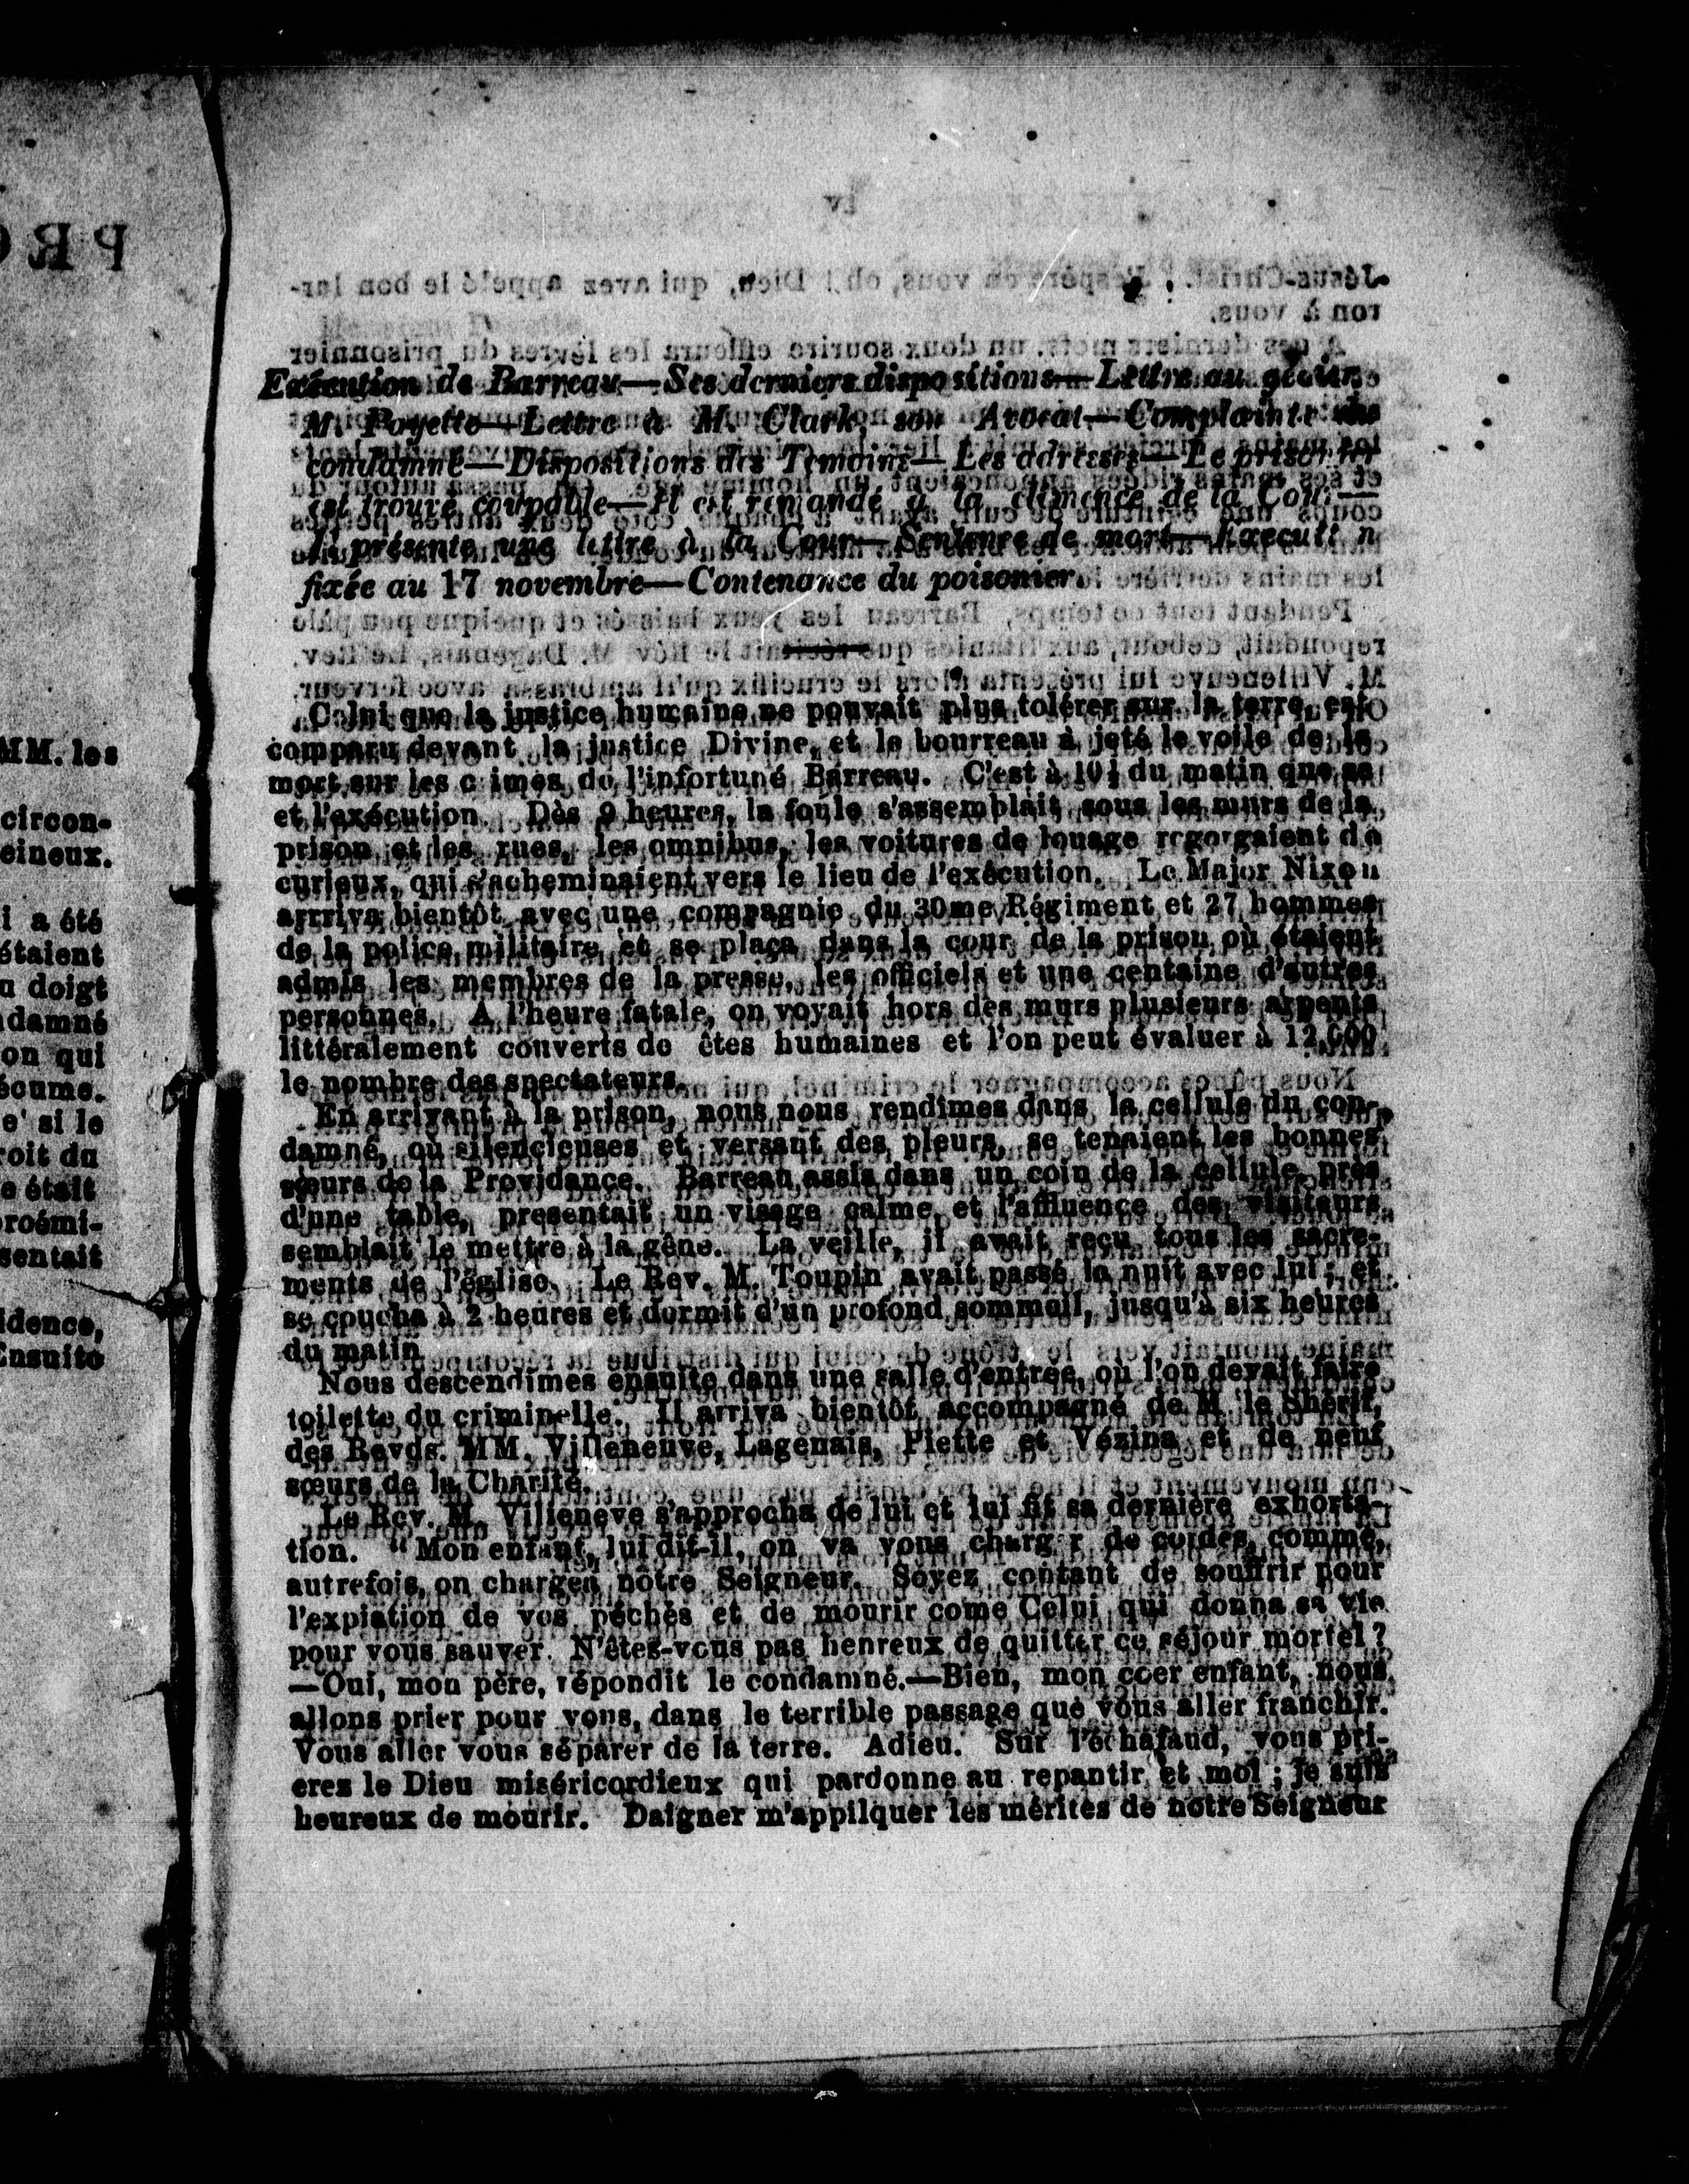 Exécution de Barreau—Ses derniers dispositions—Lettre au geolier
M. Payette—Lettre à M. Clark, son Avocat—Complainte du
condamné—Dispositions des Temoins—Les adresses—Le prisonier
est trouvé coupable—Il est remandé à la clémence de la Cour—
Il présente une lettre à la Cour—Sentence de mort—Executi n
fixée au 17 novembre—Contenance du poisonier.
Celui que la justice humaine ne pouvait plus tolérer sur la terre, est
comparu devant la justice Divine, et le bourreau à jeté le voile de la
mort sur les c imes de l'infortuné Barreau. C'est à 10½ du matin que se
et l'exécution. Dès 9 heures, la foule s'assemblait sous les murs de la
prison et les rues, les omnibus, les voitures de louage regorgaient de
curieux, qui s'acheminaient vers le lieu de l'exécution. Le Major Nixon
arrriva bientôt avec une compagnie du 30me Régiment et 27 hommes
de la police militaire et se plaça dans la cour de la prison où étaient
admis les membres de la presse, les officiels et une centaine d'autres
personnes. A l'heure fatale, on voyait hors des murs plusieurs arpents
littéralement converts de êtes humaines et l'on peut évaluer à 12,000
le nombre des spectateurs.
En arrivant à la prison, nous nous rendimes dans la cellule du con-
damné, où silencieuses et versant des pleurs, se tenaient les bonnes
sœurs de la Providance. Barreau assis dans un coin de la cellule près
d'une table, presentait un visage calme et l'affluence des visiteurs
semblait le mettre à la gêne. La veille, il avait reçu tous les sacre-
ments de l'église. Le Rev. M. Toupin avait passé la nuit avec lui; et
se coucha à 2 heures et dormit d'un profond sommeil, jusqu'à six heures
du matin
Nous descendimes ensuite dans une salle d'entrée, où l'on devait faire
toilette du criminelle. Il arriva bientôt accompagné de M. le Shérif,
des Revds. MM. Villeneuve, Lagenais, Piette et Vézina et de neuf
sœurs de la Charité.
Le Rev. M. Villeneve s'approcha de lui et lui fit sa dernière exhorta-
tion. "Mon enfant, lui dit-il, on va vous charg r de cordes, comme,
autrefois, on chargea notre Seigneur. Soyez contant de souffrir pour
l'expiation de vos péchés et de mourir come Celui qui donna sa vie
pour vous sauver. N'êtes-vous pas henreux de quitter ce séjour mortel?
—Oui, mon père, répondit le condamné.—Bien, mon ccer enfant, nous
allons prier pour vous, dans le terrible passage que vous aller franchir.
Vous aller vous séparer de la terre. Adieu. Sur l'échafaud, vous pri-
erez le Dieu miséricordieux qui pardonne au repantir et moi; je suis
heureux de mourir. Daigner m'appilquer les mérites de notre Seigneur
MM. les
circon-
eineux.
i a été
étaient
u doigt
damné
on qui
écume.
e' si le
roit du
e était
roémi-
sentait
idence,
Ensuite